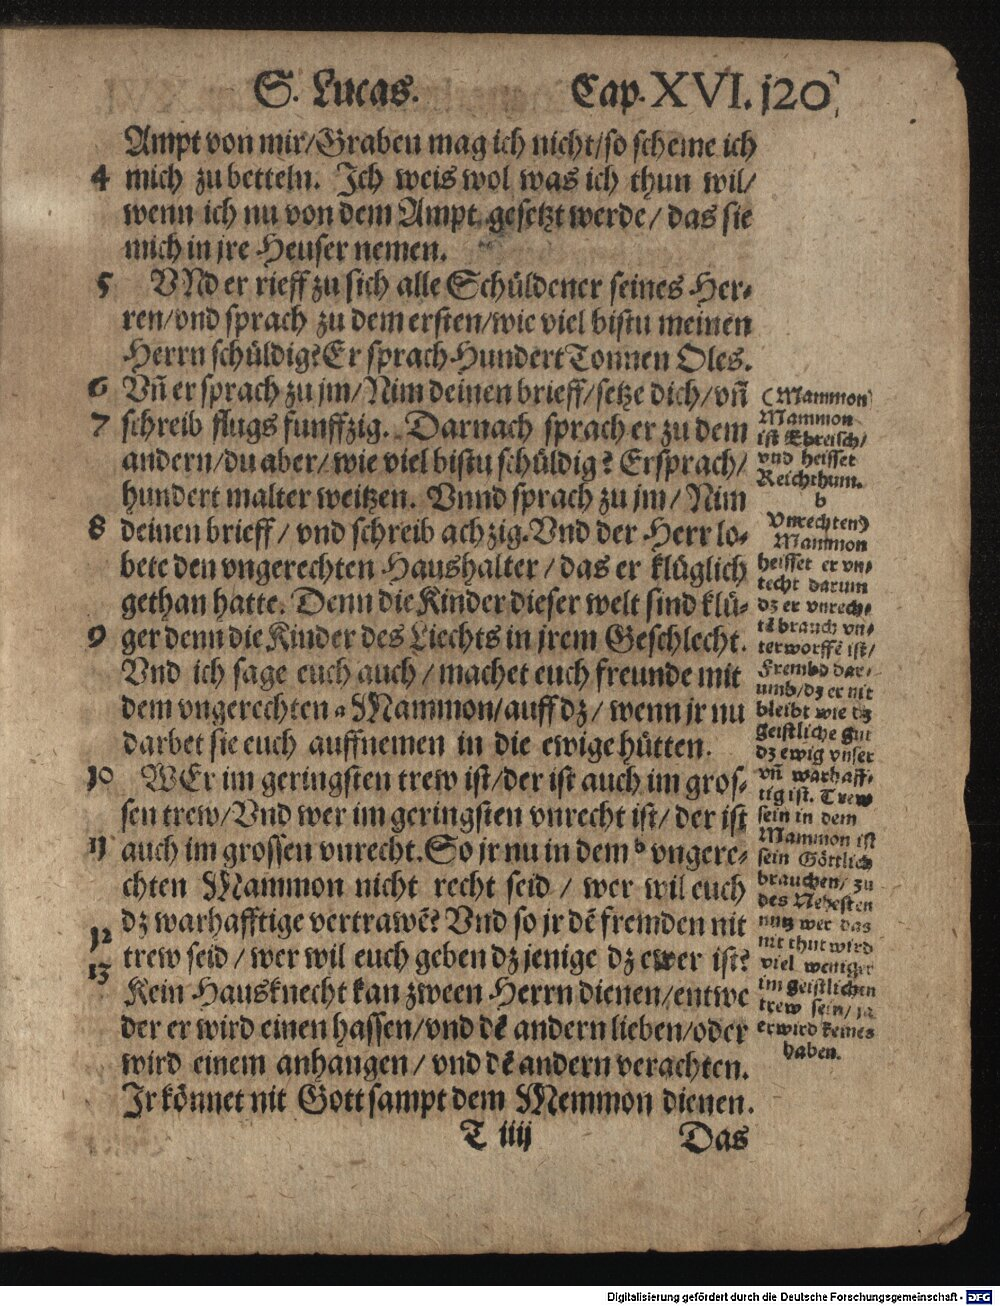 S. Lucas. Cap. XVI. 120
Ampt von mir/Graben mag ich nicht/so scheme ich
4 mich zu betteln. Ich weis wol was ich thun wil/
wenn ich nu von dem Ampt gesetzt werde/ das sie
mich in jre Heuser nemen.
5 VNd er rieff zu sich alle Schüldener seines Her-
ren/vnd sprach zu dem ersten/wie viel bistu meinen
Herrn schüldig? Er sprach Hundert Tonnen Oles.
6 Vñ er sprach zu jm/Nim deinen brieff/setze dich/vñ
7 schreib flugs funffzig. Darnach sprach er zu dem
andern/du aber/wie viel bistu schüldig? Er sprach/
hundert malter weitzen. Vnnd sprach zu jm/ Nim
8 deinen brieff/ vnd schreib achzig. Vnd der Herr lo-
bete den vngerechten Haushalter/das er klüglich
gethan hatte. Denn die Kinder dieser welt sind klü-
9 ger denn die Kinder des Liechts in jrem Geschlecht.
Vnd ich sage euch auch/machet euch freunde mit
dem vngerechten a Mammon/auff dz/ wenn jr nu
darbet sie euch auffnemen in die ewige hütten.
10 WEr im geringsten trew ist/der ist auch im gros-
sen trew/Vnd wer im geringsten vnrecht ist/ der ist
11 auch im grossen vnrecht. So jr nu in dem b vngere-
chten Mammon nicht recht seid / wer wil euch
12 dz warhafftige vertrawẽ? Vnd so jr dẽ fremden nit
13 trew seid/wer wil euch geben dz jenige dz ewer ist?
Kein Hausknecht kan zween Herrn dienen/entwe
der er wird einen hassen/vnd dẽ andern lieben/oder
wird einem anhangen/ vnd dẽ andern verachten.
Jr könnet nit Gott sampt dem Memmon dienen.
T iiij Das
(Mammon)
Mammon
ist Ebreisch/
vnd heisset
Reichthum.
b
Vnrechten)
Mammon
heisset er vn-
recht darum
dz er vnrech-
tẽ brauch vn-
terworffẽ ist/
Frembd dar-
umb/dz er nit
bleibt wie dz
geistliche gut
dz ewig vnser
vñ warhaff-
tig ist. Trew
sein in dem
Mammon ist
sein Göttlich
brauchen/ zu
des Nehesten
nutz wer das
nit thut wird
viel weniger
im geistlichen
trew sein/ ja
er wird keines
haben.
Digitalisierung gefördert durch die Deutsche Forschungsgemeinschaft - DFG